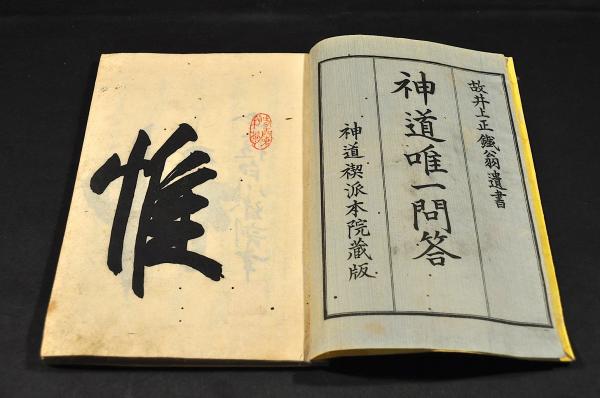 故井上正鐵翁遺書
神道唯一問答
神道禊派本院藏版
惟